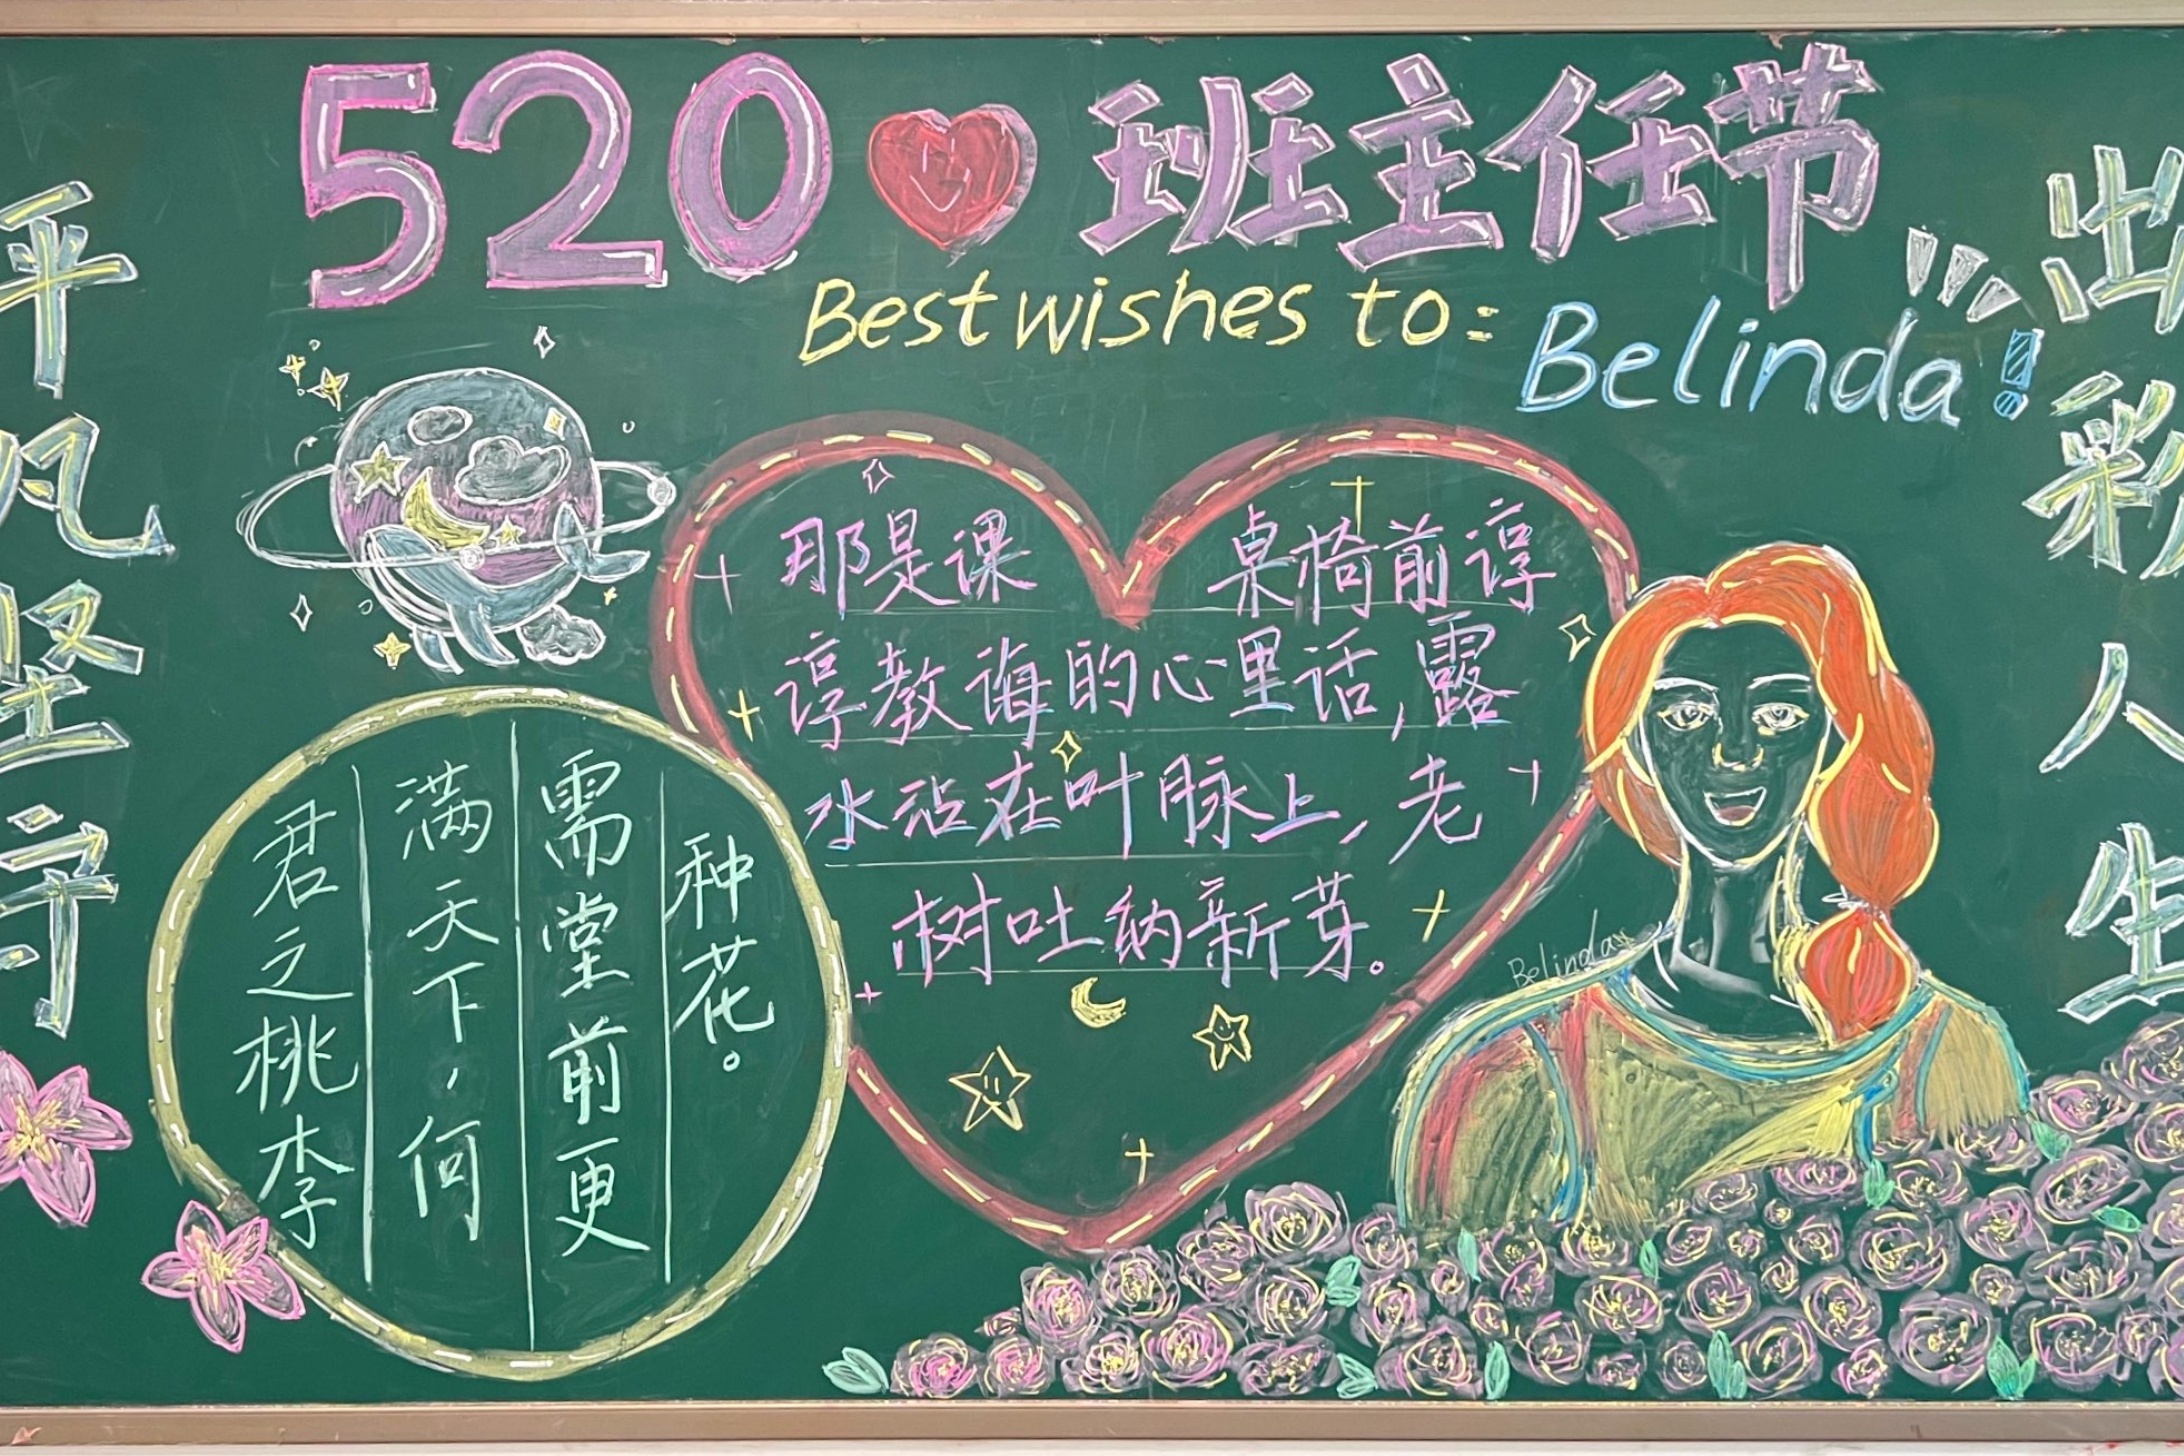 520 班主任节
Best wishes to: Belinda!
平凡坚守
君之桃李
满天下,何
需堂前更
种花。
那是课桌椅前谆
谆教诲的心里话,露
水沾在叶脉上,老
树吐纳新芽。
Belinda
出彩人生